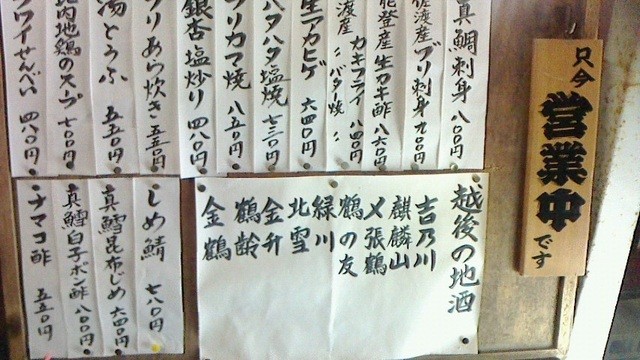 只今
営業中
です
真鯛刺身 八〇〇円
佐渡産ブリ刺身 九〇〇円
能登産生カキ酢 八六〇円
渡産カキフライ 八四〇円
〃バタ焼 〃
生アカヒゲ 六四〇円
ハタハタ塩焼 七三〇円
ブリカマ焼 八五〇円
銀杏塩炒り 四八〇円
ブリあら炊き 五五〇円
湯とうふ 五五〇円
比内地鶏のスープ 七〇〇円
フワイせんべい 四八〇円
越後の地酒
吉乃川
麒麟山
〆張鶴
鶴の友
緑川
北雪
金升
鶴齢
金鶴
しめ鯖 七八〇円
真鱈昆布じめ 六四〇円
真鱈白子ポン酢 八〇〇円
ナマコ酢 五五〇円